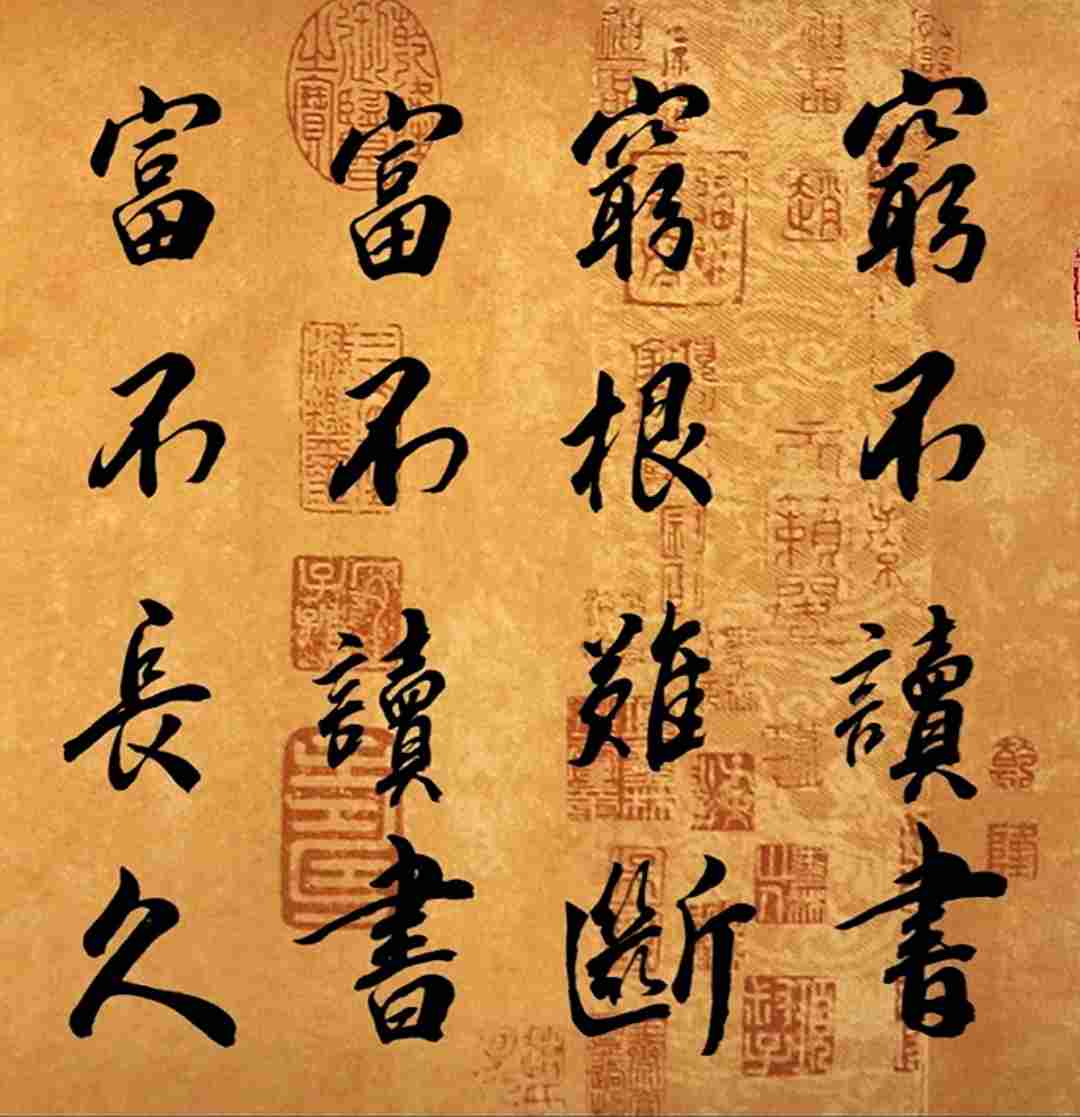 窮不讀書
窮根難斷
富不讀書
富不長久